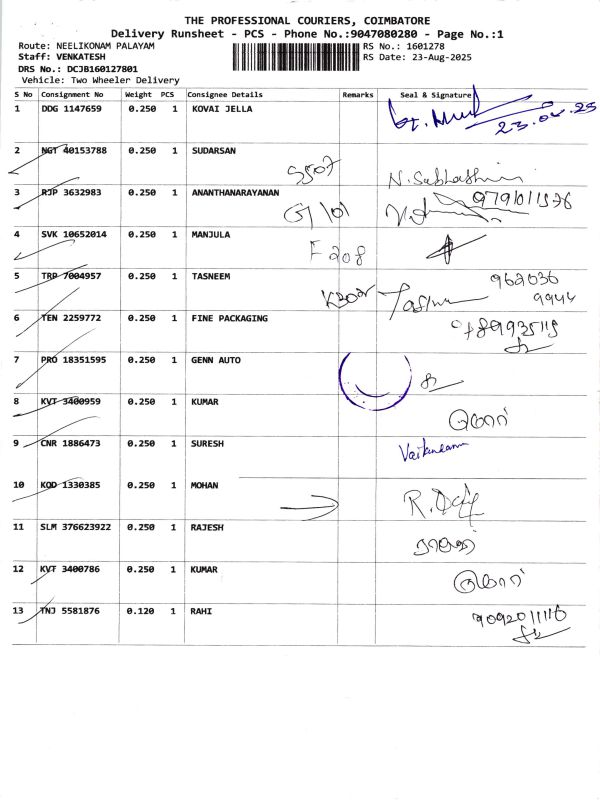 THE PROFESSIONAL COURIERS, COIMBATORE
Delivery Runsheet - PCS - Phone No.:9047080280 - Page No.:1
Route: NEELIKONAM PALAYAM RS No.: 1601278
Staff: VENKATESH RS Date: 23-Aug-2025
DRS No.: DCJB160127801
Vehicle: Two Wheeler Delivery
S No Consignment No Weight PCS Consignee Details Remarks Seal & Signature
1 DDG 1147659 0.250 1 KOVAI JELLA
2 NGT 40153788 0.250 1 SUDARSAN
S507
3 RJP 3632983 0.250 1 ANANTHANARAYANAN
G1101
4 SVK 10652014 0.250 1 MANJULA
F208
5 TRP 7004957 0.250 1 TASNEEM 962036
K302 9944
6 TEN 2259772 0.250 1 FINE PACKAGING
7 PRO 18351595 0.250 1 GENN AUTO
8 KVT 3400959 0.250 1 KUMAR
குமார்
9 CNR 1886473 0.250 1 SURESH
10 KQD 1330385 0.250 1 MOHAN
11 SLM 376623922 0.250 1 RAJESH
12 KVT 3400786 0.250 1 KUMAR
குமார்
13 TNJ 5581876 0.120 1 RAHI